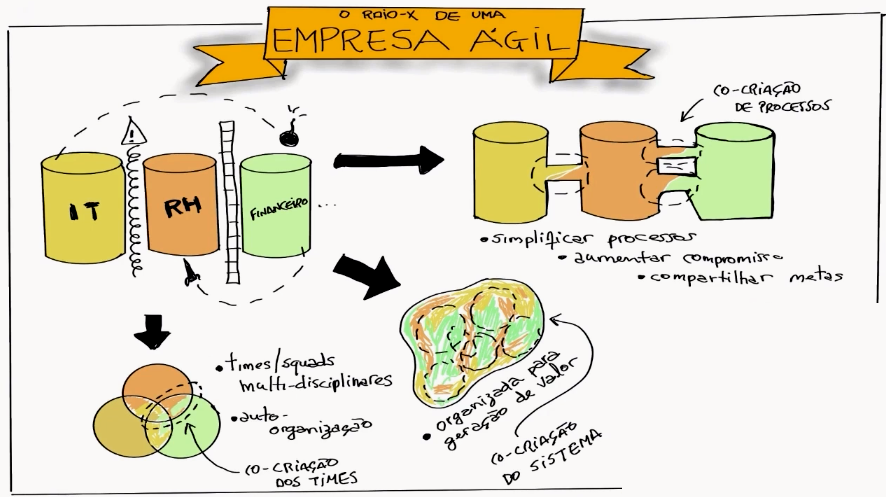 O RAIO-X DE UMA
EMPRESA ÁGIL
!
IT
RH
FINANCEIRO
...
CO-CRIAÇÃO
DE PROCESSOS
• simplificar processos
• aumentar compromisso
• compartilhar metas
• times/squads
multi-disciplinares
• auto-
organização
CO-CRIAÇÃO
DOS TIMES
• organizada para
geração de valor
CO-CRIAÇÃO
DO SISTEMA